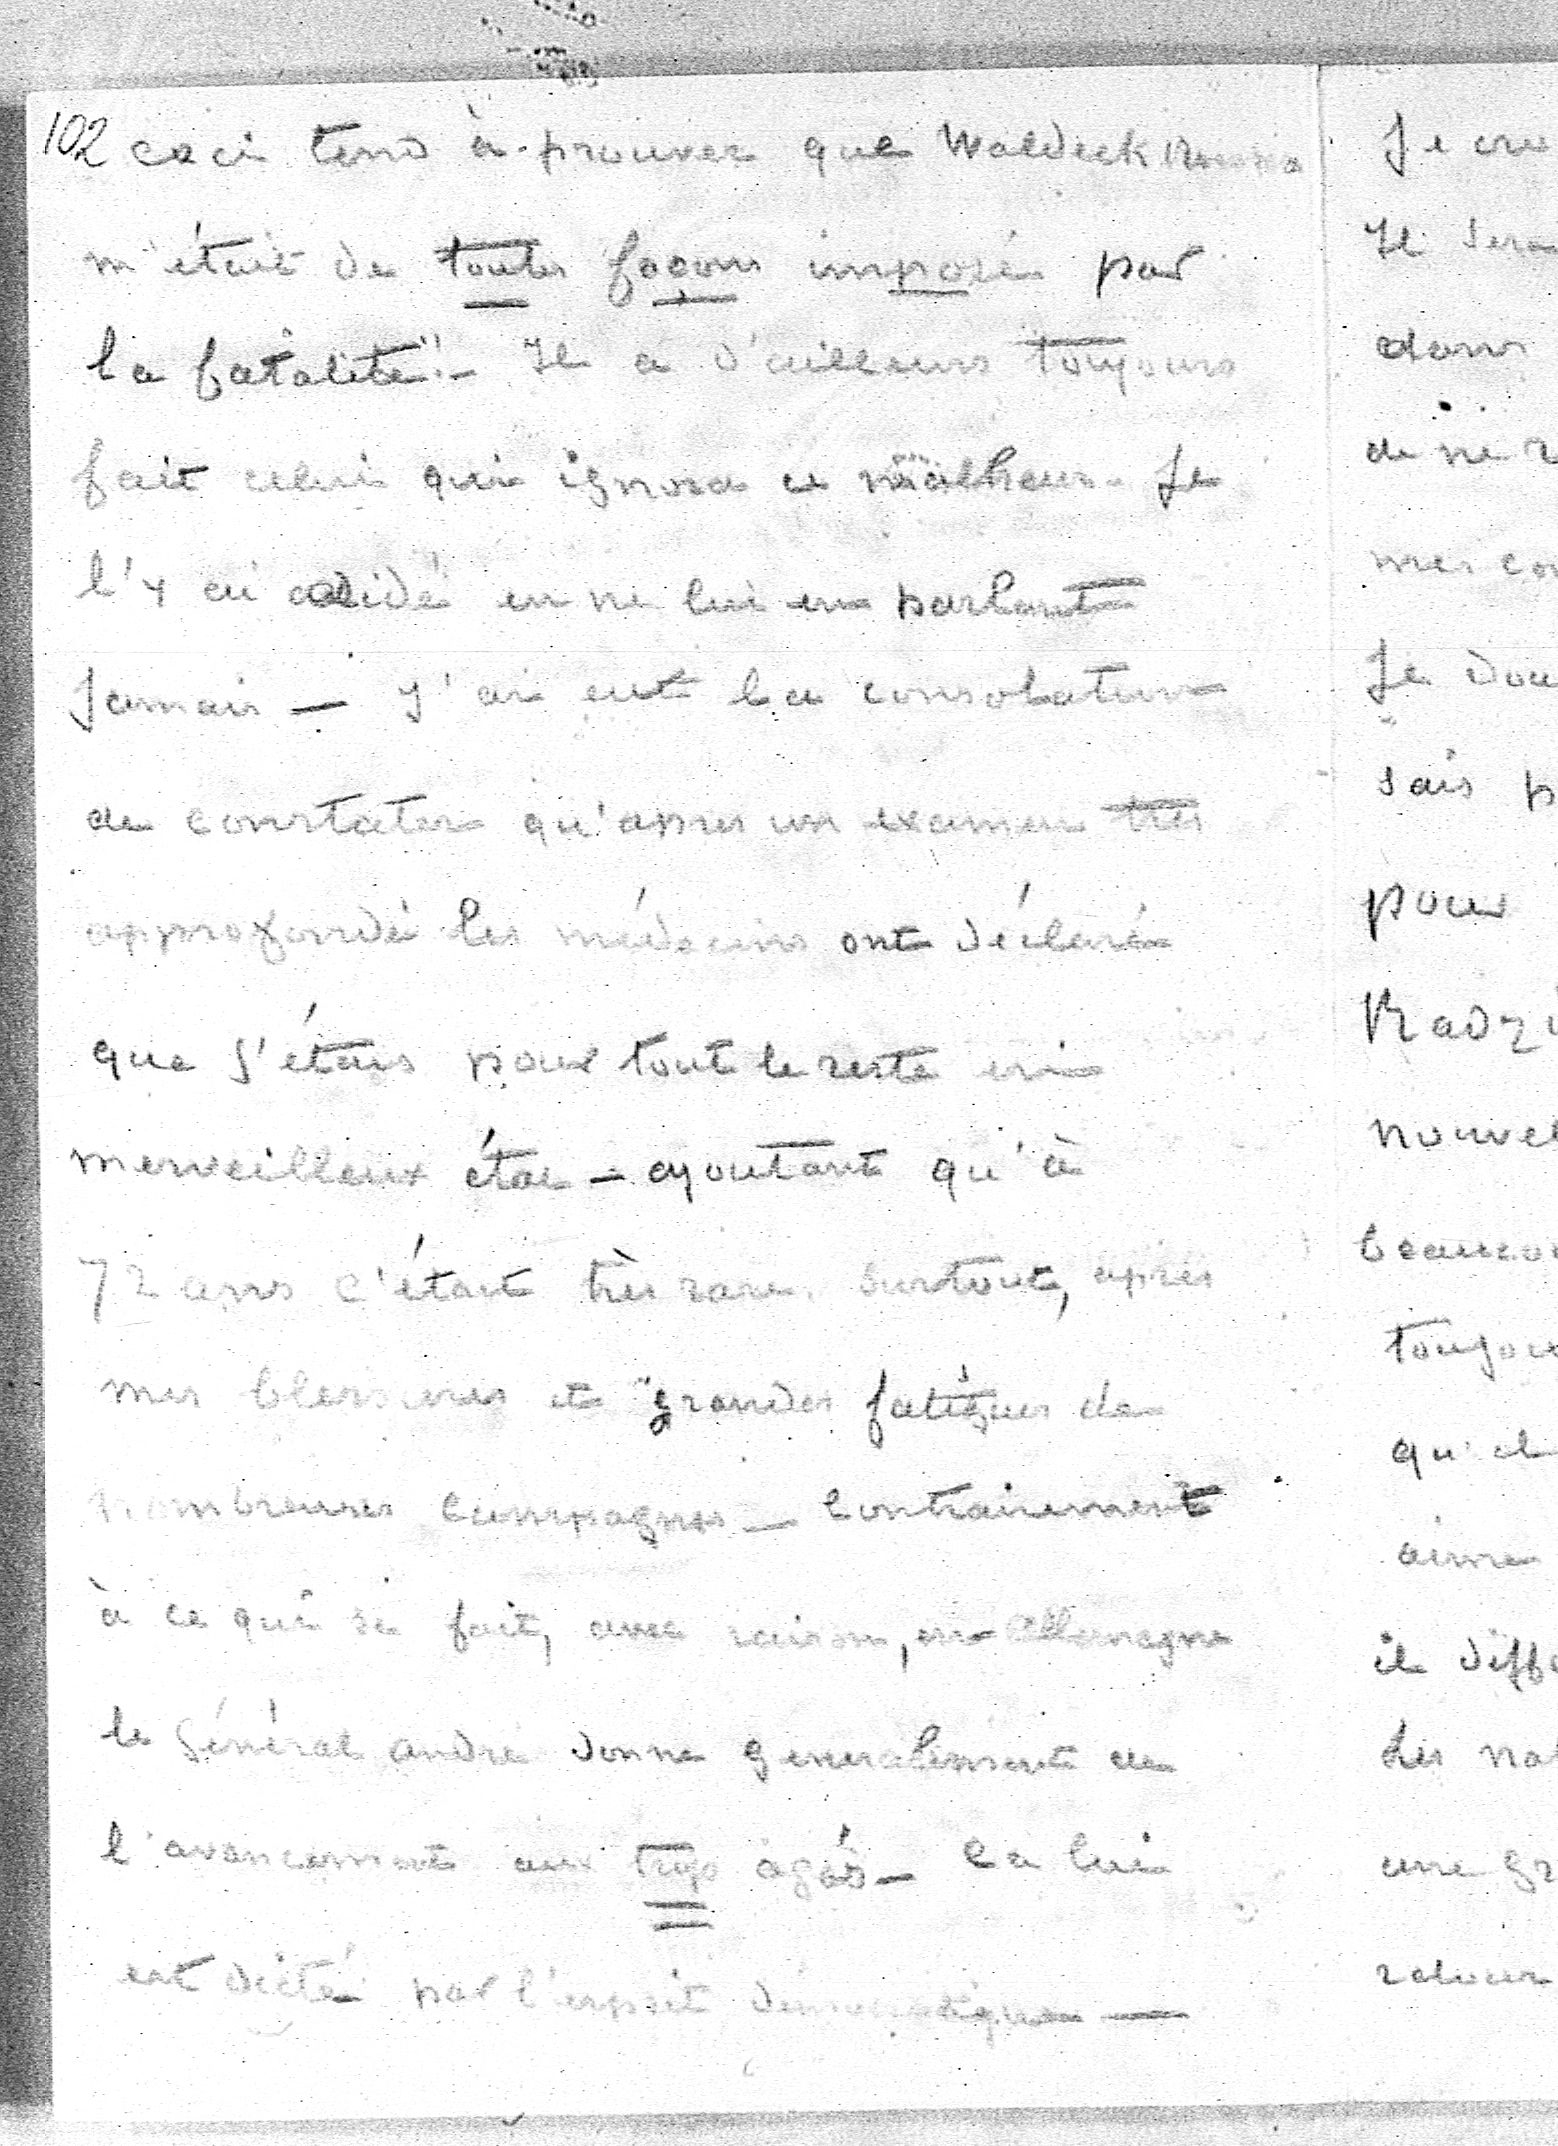 102 ceci tend à prouver que Waldeck Rousseau
m'était de toutes façons imposé par
la fatalité". Il a d'ailleurs toujours
fait celui qui ignora ce malheur. Je
l'y ai aidé en ne lui en parlant
Jamais — J'ai eut la consolation
de constater qu'apres un examen très
approfondi les médecins ont déclaré
que J'étais pour tout le reste en
merveilleux état — ajoutant qu'à
72 ans c'était très rare. Surtout, après
mes blessures et grandes fatigues de
nombreuses campagnes — Contrairement
à ce qui se fait, avec raison, en Allemagne
le Général andré donne generalement de
l'avancement aux trop âgés — Ca lui
est dicté par l'esprit démocratique —
Je cru
Il sera
dans
de ne r
mes con
Je dou
sais p
pour
Radzi
nouvel
beaucou
toujou
qu'il
aime
il diffé
des nat
une gr
valeur